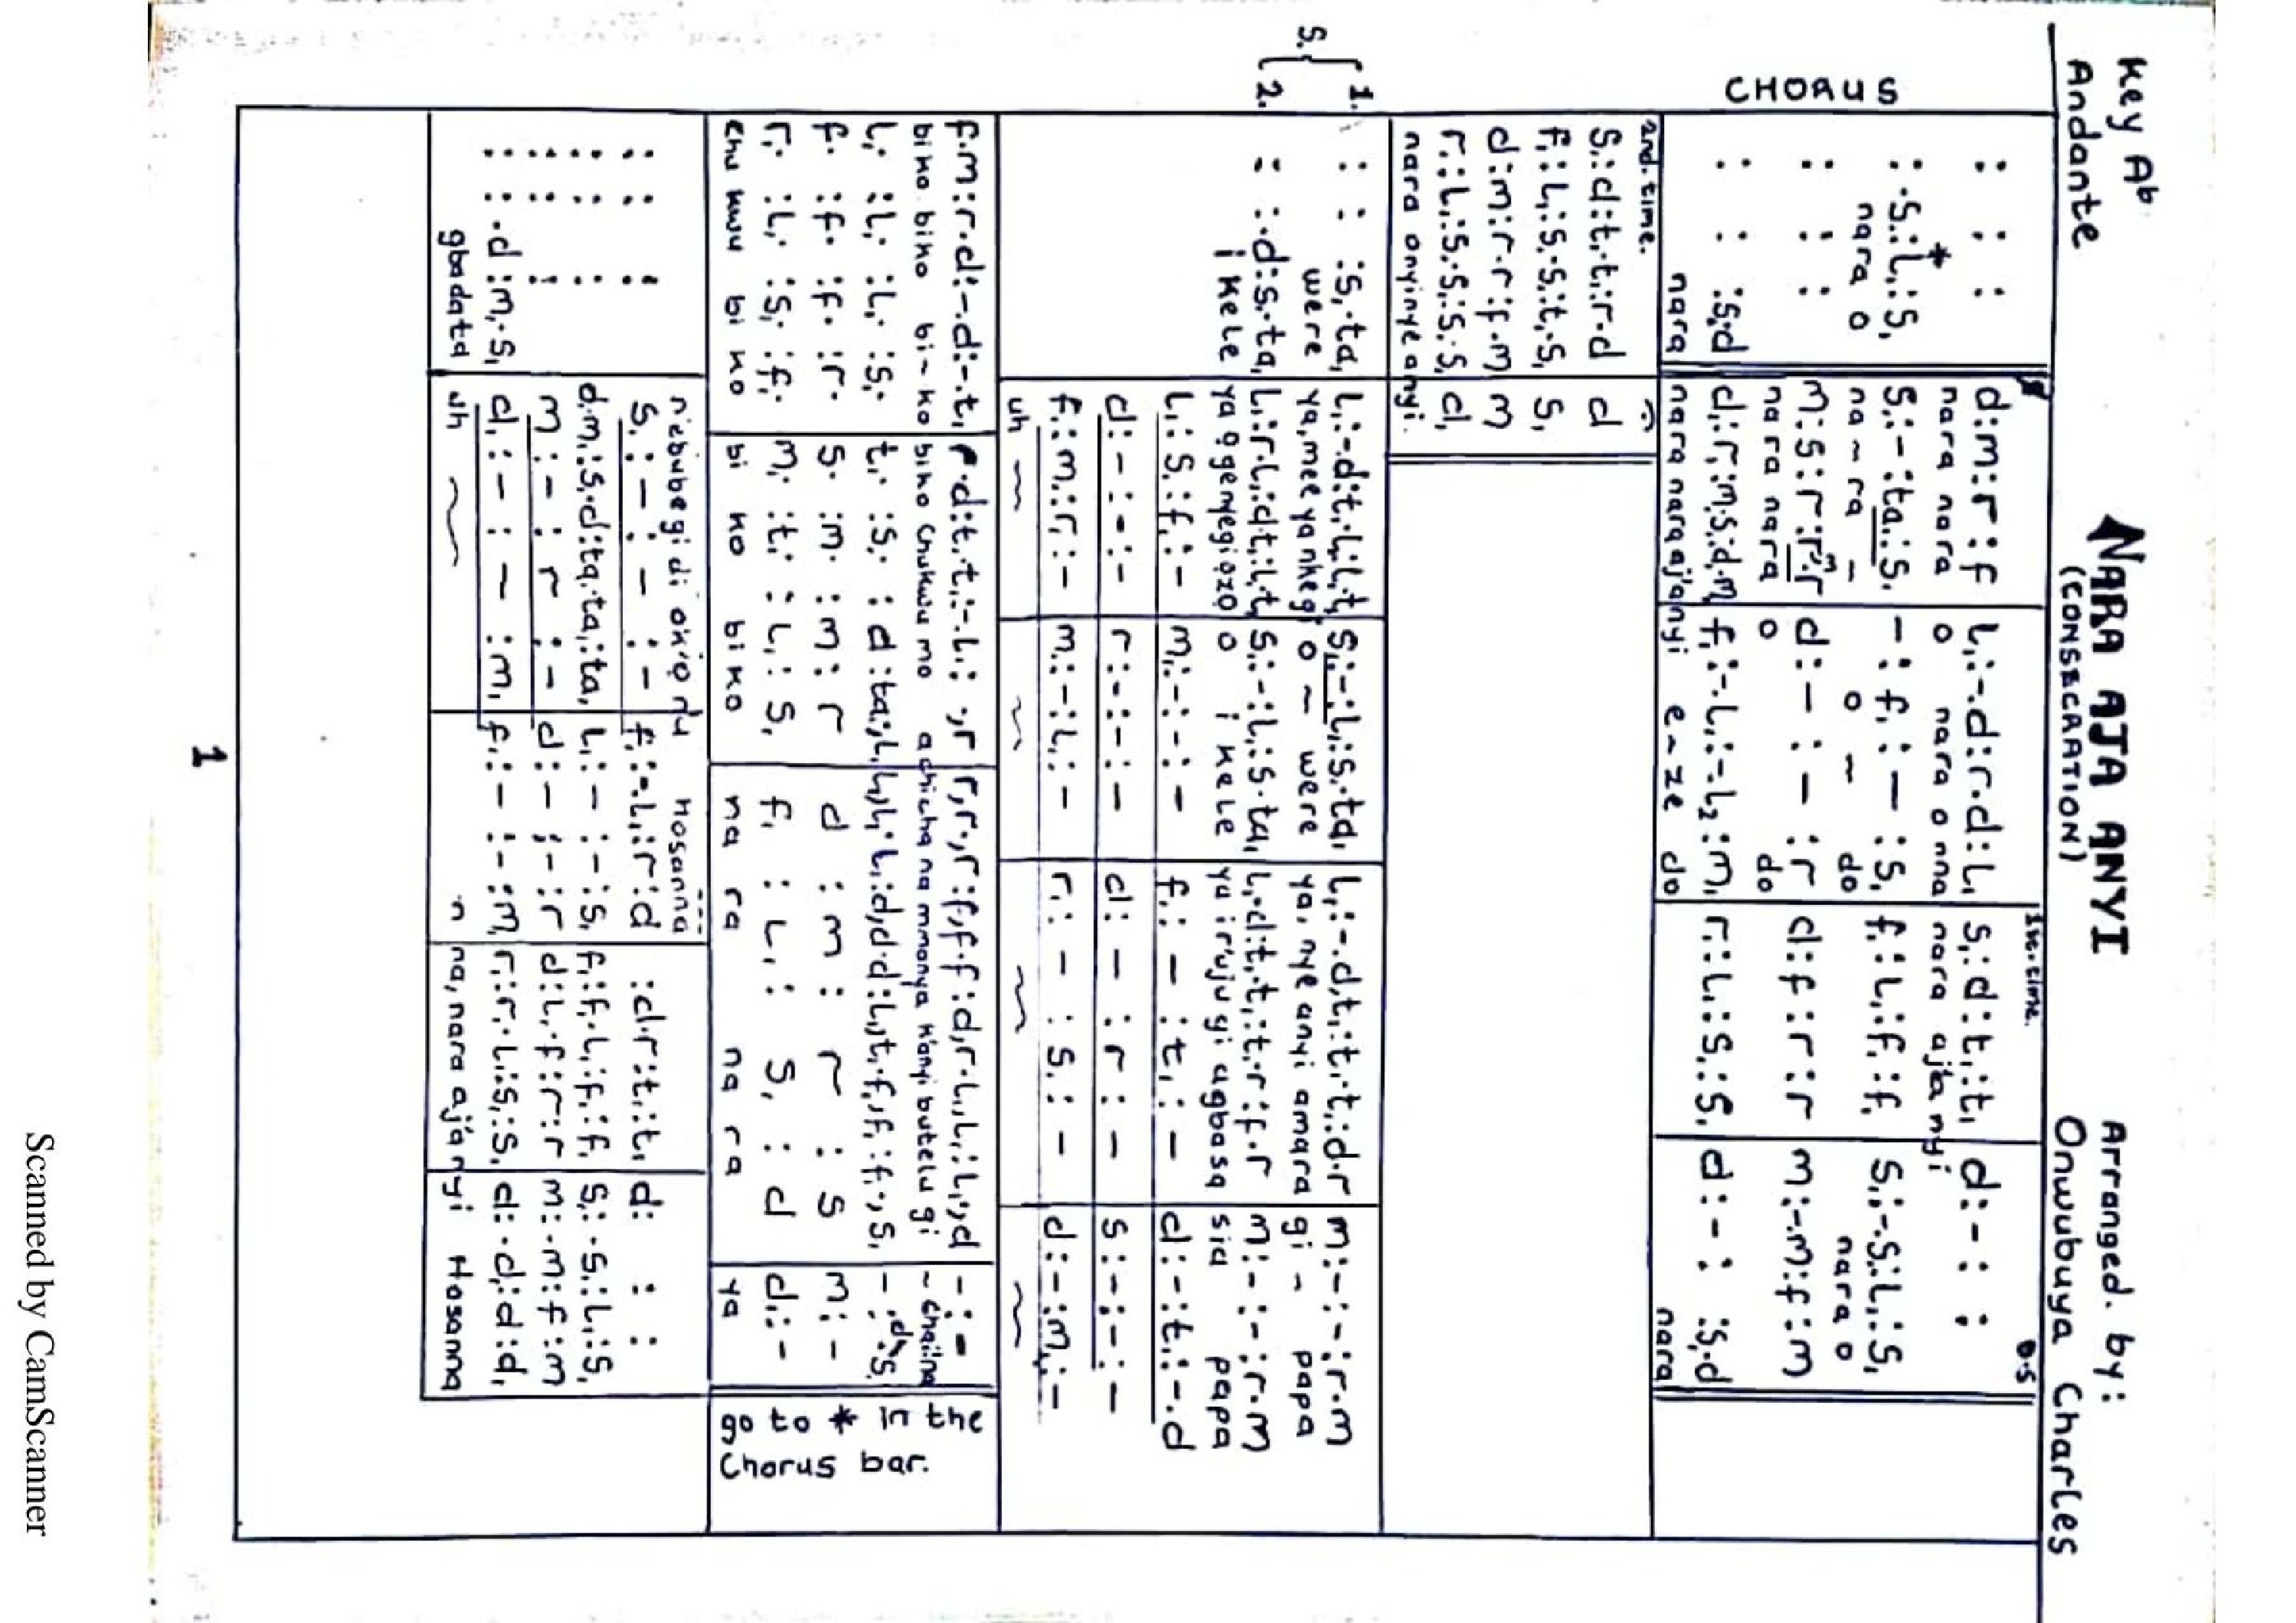 Key Ab
NARA AJA ANYI
Arranged. by:
Andante
(CONSECRATION)
Onwubuya Charles
CHORUS
1st. time.
D.S
: : : d:m:r:f l,:-.d:r.d:l, s,:d:t,:t, d:-: :
nara nara o nara o nna nara aja anyi
: .s,:l,:s, s,:-:ta,:s, -:f,:-:s, f,:l,:f,:f, s,:-.s,:l,:s,
nara o na ~ ra - o - do nara o
: : : m:s:r:r.r d:-:-:r d:f:r:r m:-.m:f:m
nara nara o do
: : :s,.d d,:r,:m,.s,:d,.m, f,:-.l,:-.l₂:m, r,:l,:s,:s, d:-: :s,.d
nara nara nara aj'anyi e-ze do nara
2nd. time.
s,:d:t,.t,:r.d d
f,:l,:s,.s,:t,.s, s,
d:m:r.r:f.m m
r,:l,:s,.s,:s,.s, d,
nara onyinye anyi.
S.
1. : : :s,.ta, l,:-.d:t,.l,:l,.t, s,:-:l,:s,.ta, l,:-.d,t,:t,.t,:d.r m:-:-:r.m
were ya, mee ya nkegi o ~ were ya, nye anyi amara gi - papa
2. : :.d:s,.ta, l,:r.l,:d.t,:l,.t, s,:-:l,:s,.ta, l,.d:t,.t,:t,.r:f.r m:-:-:r.m
i kele ya gegenyegiozo o i kele ya irujugi agbasa sia papa
l,:s,:f,:- m,:-:-:- f,:-:t,:- d:-:t,:-.d
d:-:-:- r:-:-:- d:-:r:- s:-:-:-
f,:m,:r,:- m,:-:l,:- r,:-:s,:- d:-:m,:-
uh ~ ~ ~ ~
f.m:r.d:-.d:-.t, r.d:t,.t,:-.l,: .,r r,r.,r:f,f.f:d,r.l,,l,:l,.,d -:-
biko biko bi-ko biko chukwu mo achicha na mmanya k'anyi butelu gi
l,. :l,. :l,. :s,. t,. :s,. :d:ta,.,l, -:.d.s,
f. :f. :f. :r. s. :m. :m:r d:m:r:s m:-
r,. :l,. :s,. :f,. m,. :t,. :l,:s, f,:l,:s,:d d,:-
chu kwu bi ko bi ko biko na ra na ra ya
go to * in the
Chorus bar.
n'ebubegi di ok'onu Hosanna
: : : s,:-:-:- f,:-.l,:r:d :d.r:t,:t, d: : :
: : : d.m,:s,.d:ta,.ta,:ta, l,:-:-:s, f,:f,.l,:f,:f, s,:.s,:l,:s,
: : : m:-:r:- d:-:-:r d:l,.f:r:r m:.m:f:m
: : .d:m,.s, d,:-:-:m, f,:-:-:m, r,:r,.l,:s,:s, d:.d,:d:d,
gbadata uh ~ n na, nara aja'nyi Hosanna
1
Scanned by CamScanner